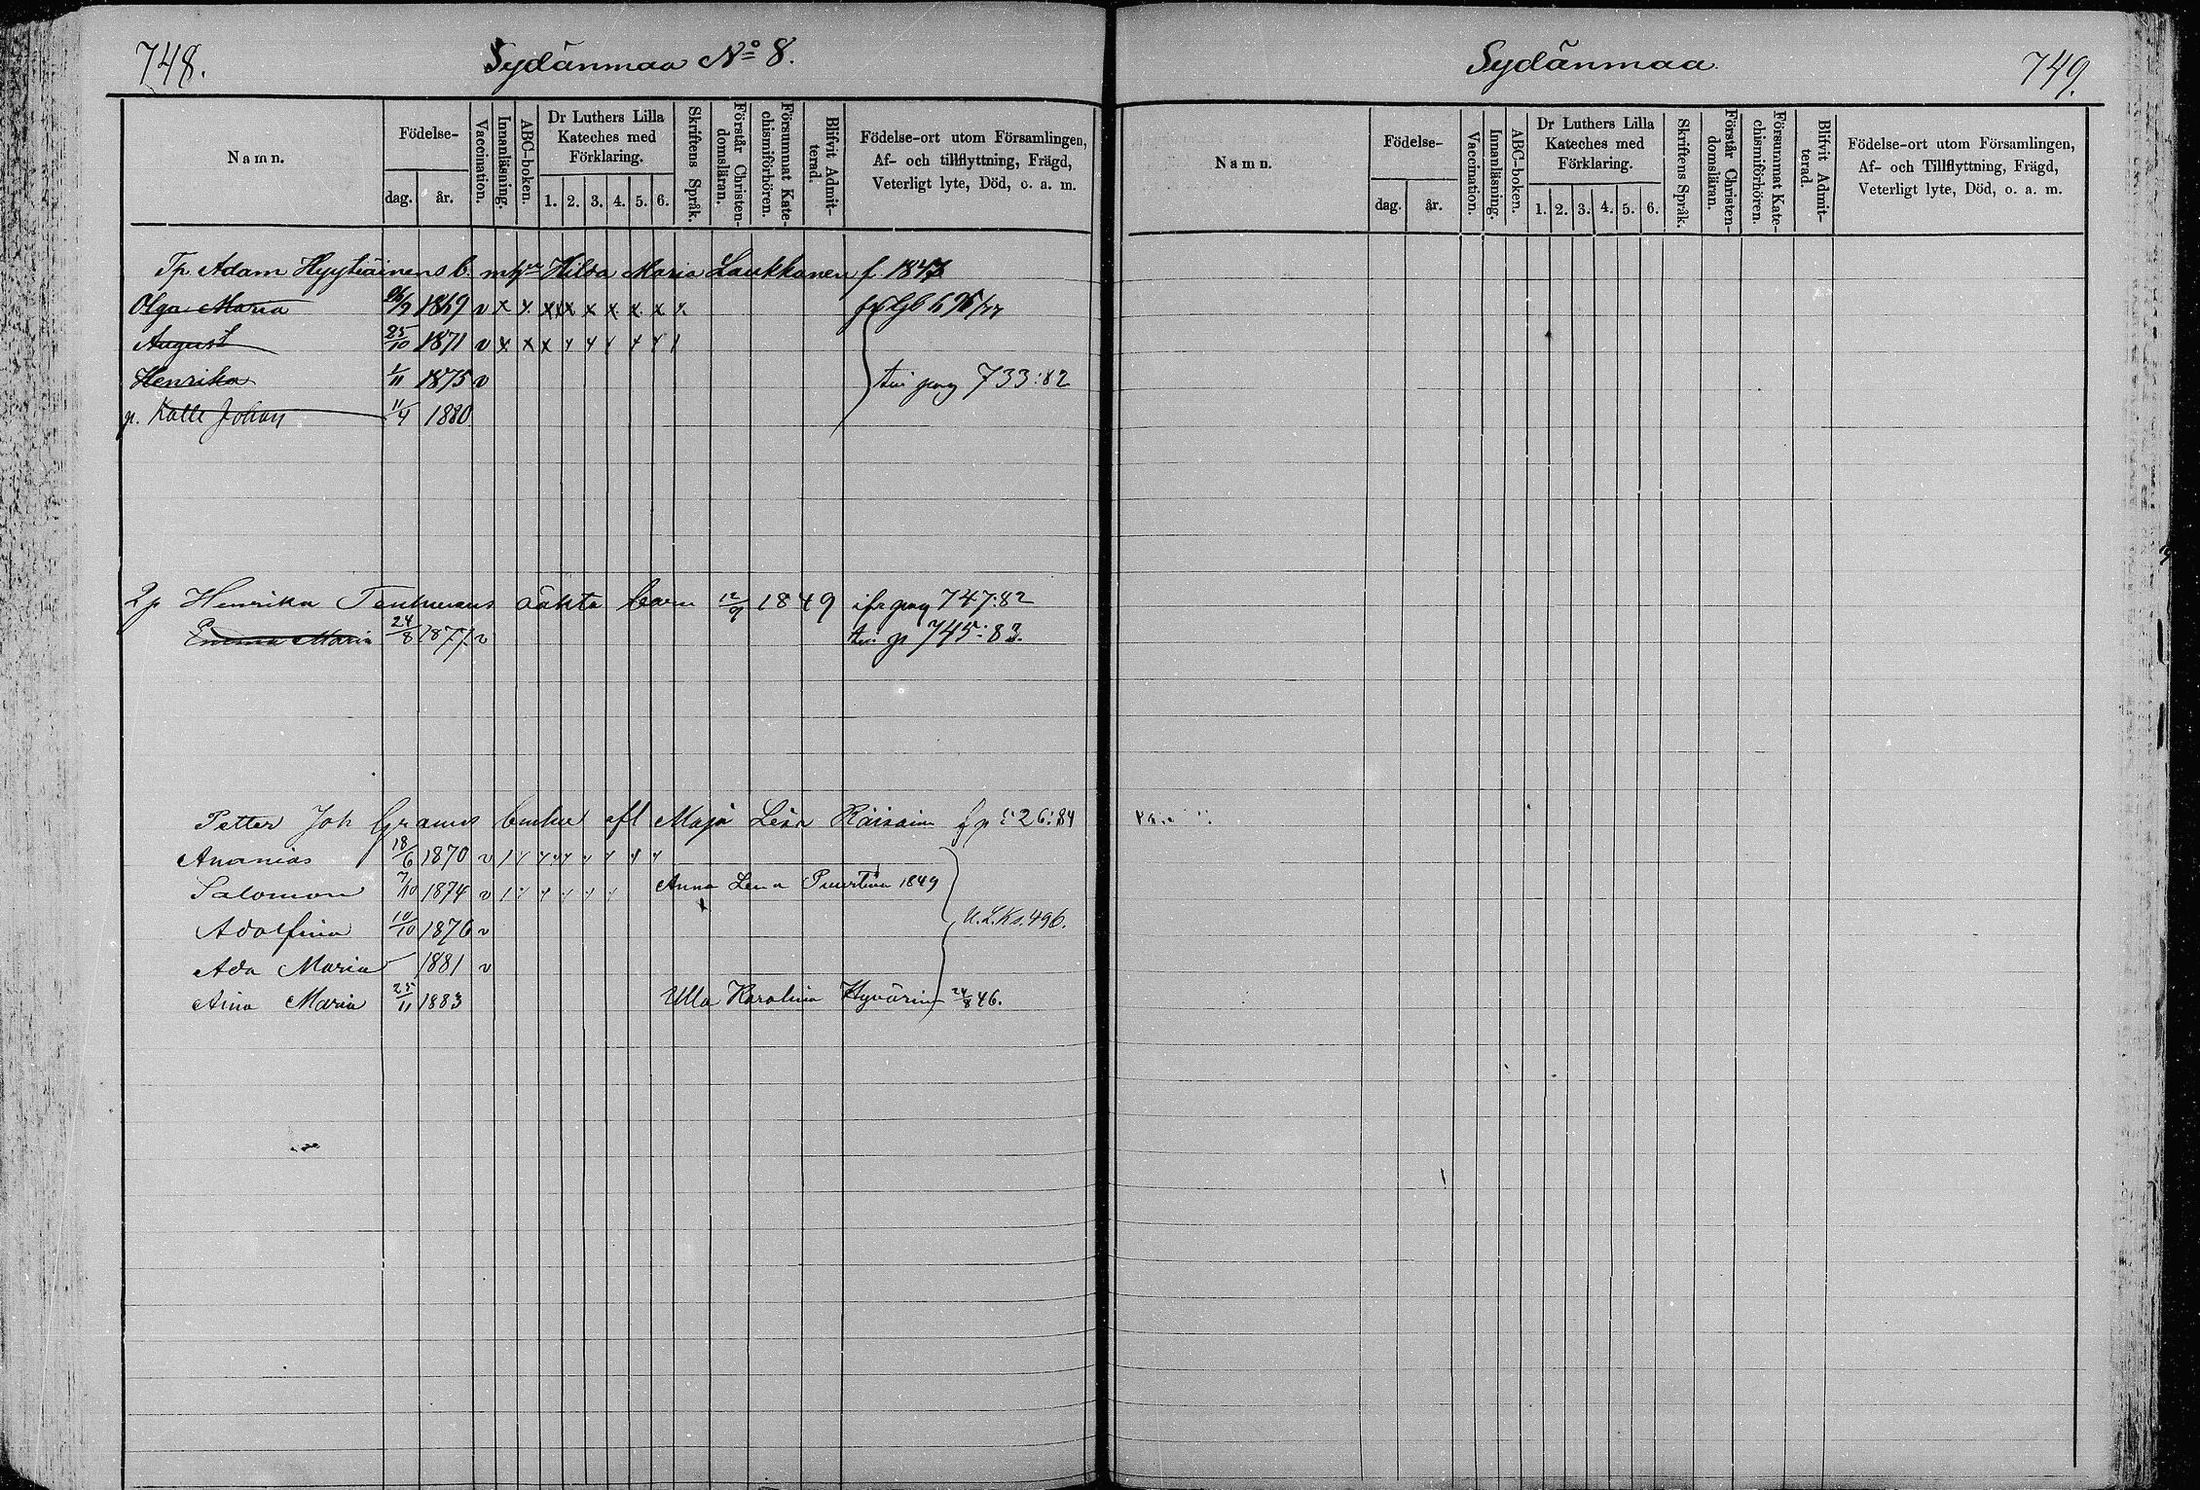 748. Sydänmaa Nº 8.
Namn. Födelse- dag. år. Vaccination. Innanläsning. ABC-boken. Dr Luthers Lilla Kateches med Förklaring. 1. 2. 3. 4. 5. 6. Skriftens Språk. Förstår Christen-domsläran. Försummat Kate-chismiförhören. Blifvit Admit-terad. Födelse-ort utom Församlingen, Af- och tillflyttning, Frägd, Veterligt lyte, Död, o. a. m.
Tp. Adam Hyytiäinens b. m Hilda Maria Laukkanen f. 1843
Olga Maria 1869 v x x x x x x x x x
August 25/10 1871 v x x x
Henrika 1/11 1875 v 733:82
p. Kalle Johan 11/4 1880
2 p Henrika Tenhunens oäkta barn 12/9 1849 ifr pag 747:82
Emma Maria 24/8 1877 v p 745:83.
Petter Joh Maja Lisa Räisäin 26:84
Ananias 18/6 1870 v
Salomon 7/10 1874 v Anna Lena 1849
Adolfina 10/10 1876 v U.L.Ks. 496.
Ada Maria 1881 v
Aina Maria 25/11 1883 Ulla Karolina Hyvärin 24/8 46.
Sydänmaa 749.
Namn. Födelse- dag. år. Vaccination. Innanläsning. ABC-boken. Dr Luthers Lilla Kateches med Förklaring. 1. 2. 3. 4. 5. 6. Skriftens Språk. Förstår Christen-domsläran. Försummat Kate-chismiförhören. Blifvit Admit-terad. Födelse-ort utom Församlingen, Af- och Tillflyttning, Frägd, Veterligt lyte, Död, o. a. m.